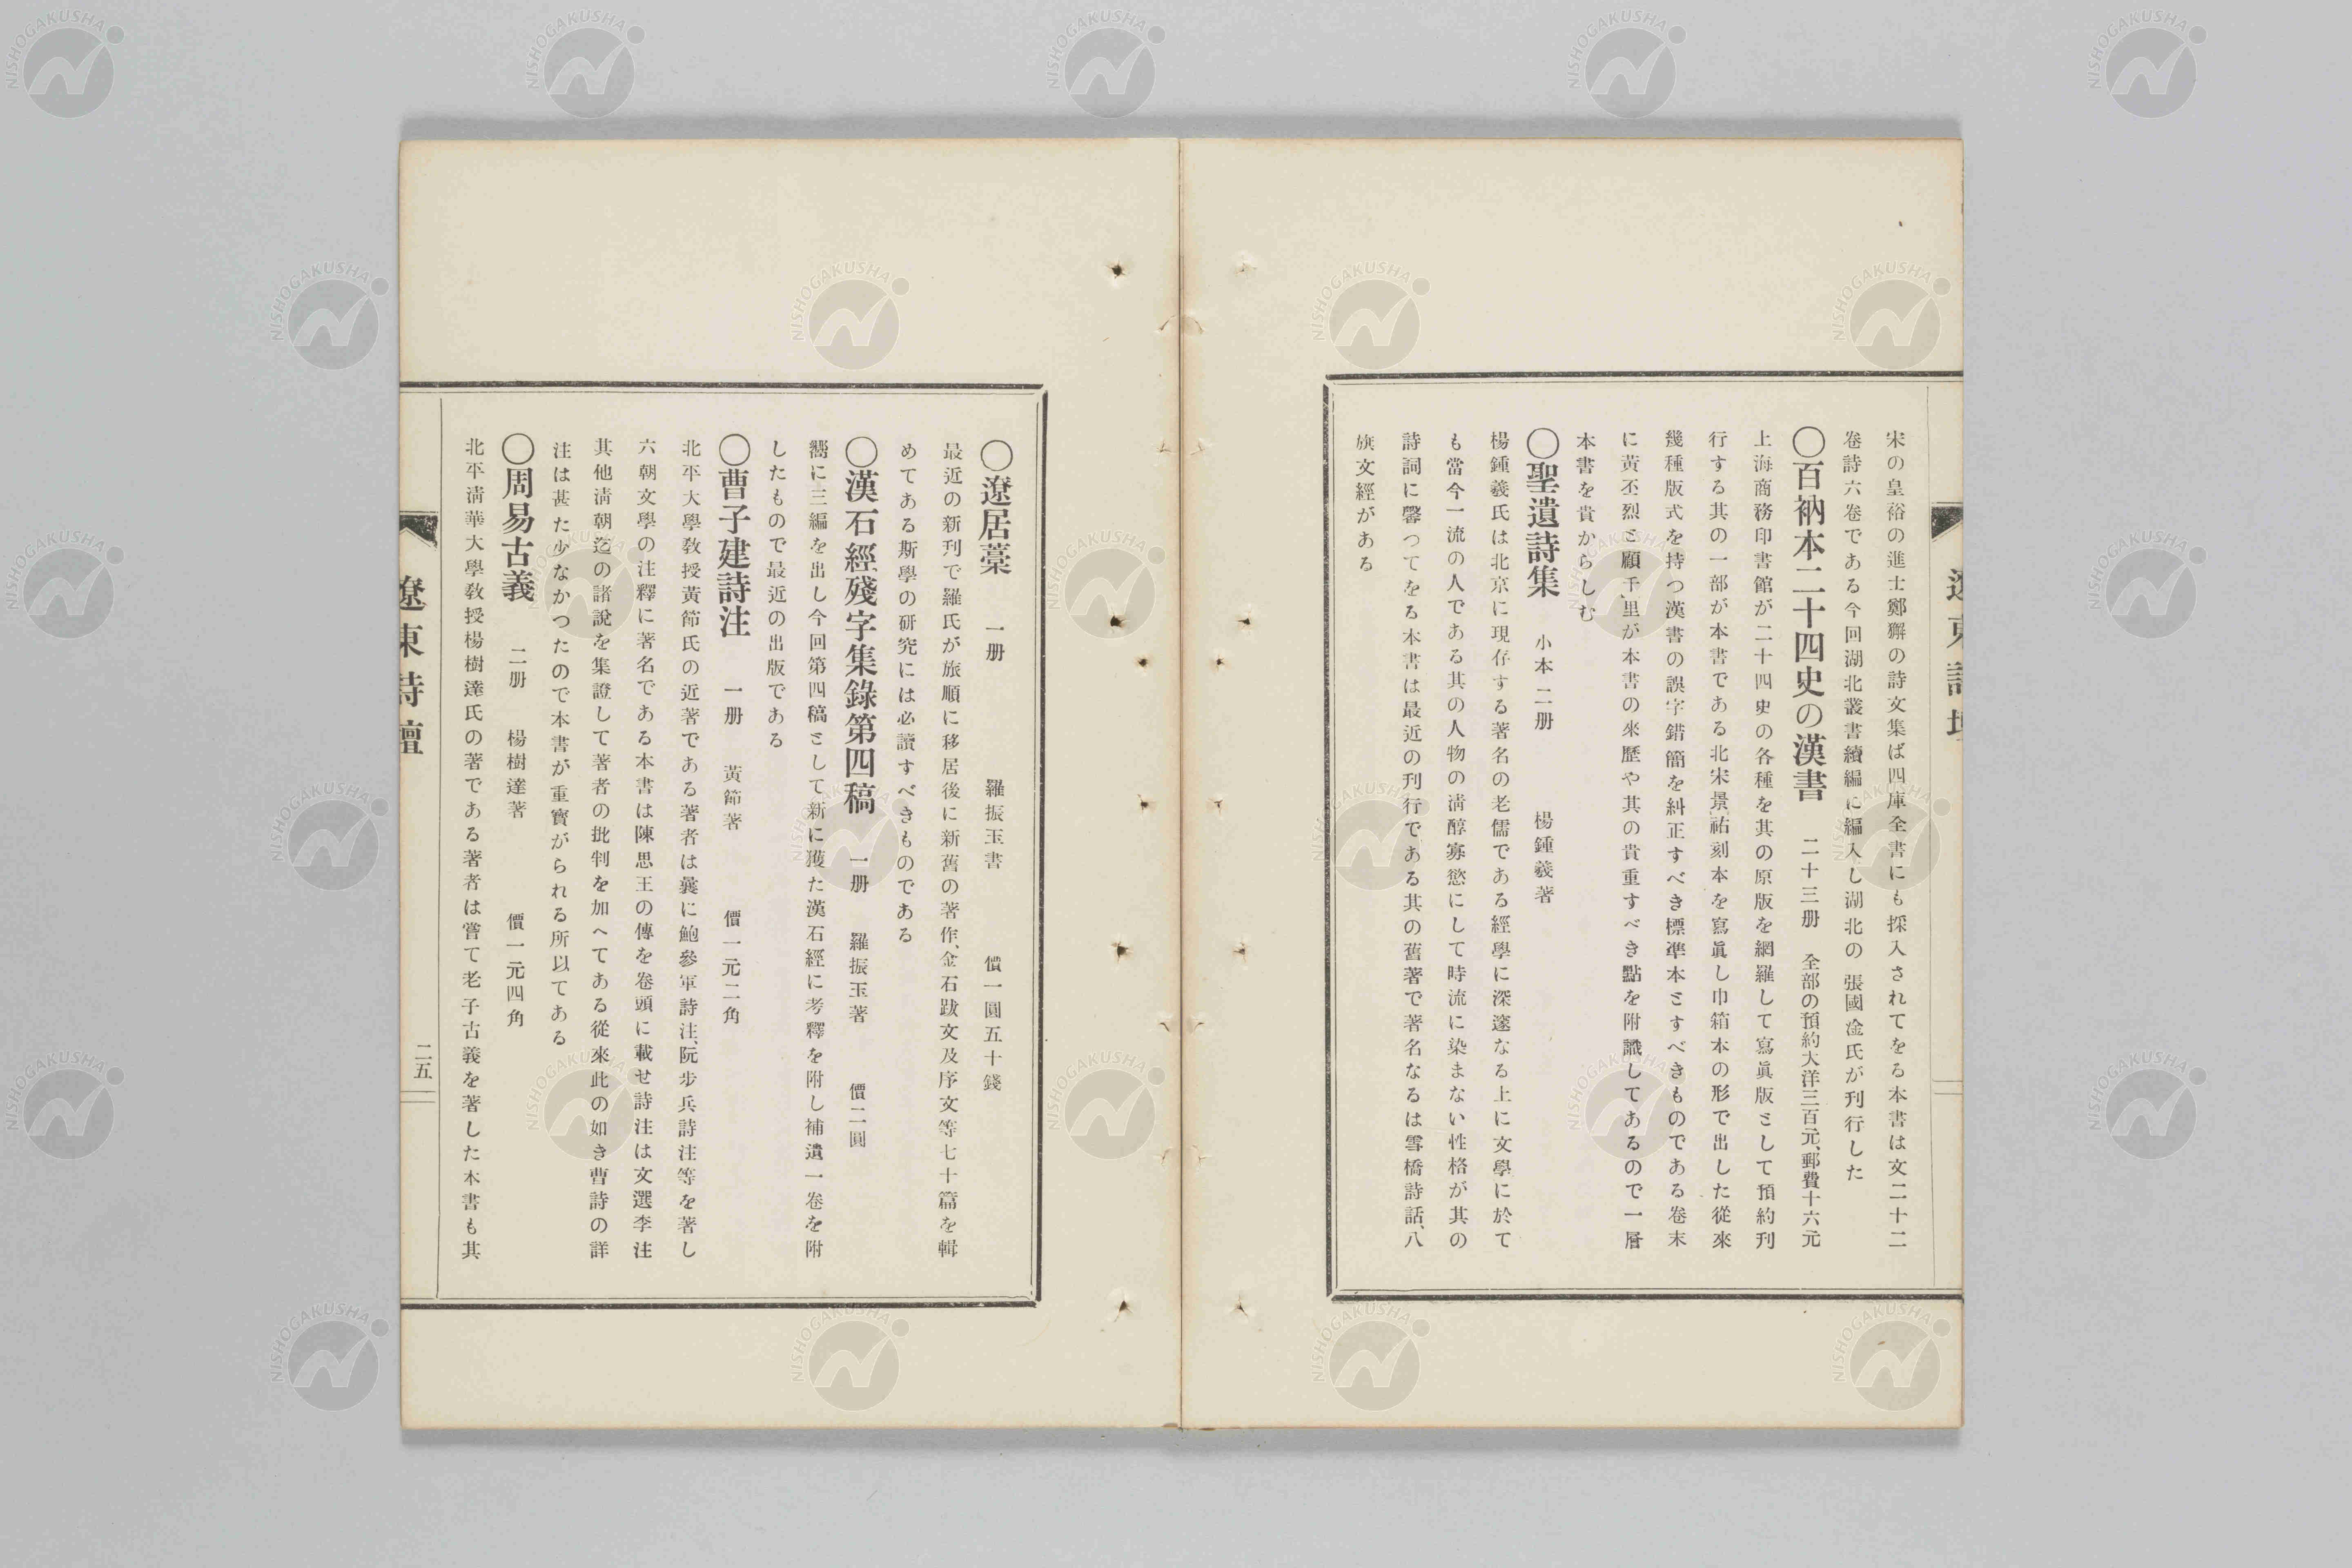 宋の皇祐の進士鄭獬の詩文集ば四庫全書にも採入されてをる本書は文二十二
卷詩六卷である今回湖北叢書續編に編入し湖北の張國淦氏が刊行した
〇百衲本二十四史の漢書　二十三册　全部の預約大洋三百元、郵費十六元
上海商務印書館が二十四史の各種を其の原版を網羅して寫眞版として預約刊
行する其の一部が本書である北宋景祐刻本を寫眞し巾箱本の形で出した從來
幾種版式を持つ漢書の誤字錯簡を糾正すべき標準本とすべきものである卷末
に黃丕烈と顧千里が本書の來歷や其の貴重すべき點を附識してあるので一層
本書を貴からしむ
〇聖遺詩集　小本二册　楊鍾羲著
楊鍾羲氏は北京に現存する著名の老儒である經學に深邃なる上に文學に於て
も當今一流の人である其の人物の淸醇寡慾にして時流に染まない性格が其の
詩詞に馨つてをる本書は最近の刊行である其の舊著で著名なるは雪橋詩話、八
旗文經がある
遼東詩壇
〇遼居藁　一册　羅振玉書　價一圓五十錢
最近の新刊で羅氏が旅順に移居後に新舊の著作、金石跋文及序文等七十篇を輯
めてある斯學の研究には必讀すべきものである
〇漢石經殘字集錄第四稿　一册　羅振玉著　價二圓
嚮に三編を出し今回第四稿として新に獲た漢石經に考釋を附し補遺一卷を附
したもので最近の出版である
〇曹子建詩注　一册　黃節著　價一元二角
北平大學敎授黃節氏の近著である著者は曩に鮑參軍詩注、阮步兵詩注等を著し
六朝文學の注釋に著名である本書は陳思王の傳を卷頭に載せ詩注は文選李注
其他淸朝迄の諸說を集證して著者の批判を加へてある從來此の如き曹詩の詳
注は甚た少なかつたので本書が重寳がられる所以てある
〇周易古義　二册　楊樹達著　價一元四角
北平淸華大學敎授楊樹達氏の著である著者は嘗て老子古義を著した本書も其
遼東詩壇
二五
NISHOGAKUSHA